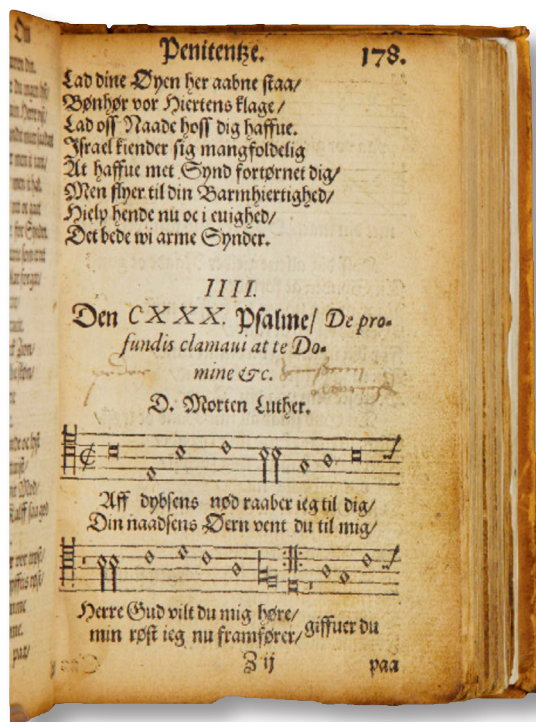 Penitentze. 178.
Lad dine Øyen her aabne staa/
Bønhør vor Hiertens klage/
Lad oss Naade hoss dig haffue.
Israel kiender sig mangfoldelig
At haffue met Synd fortørnet dig/
Men flyer til din Barmhiertighed/
Hielp hende nu oc i euighed/
Det bede wi arme Synder.
IIII.
Den CXXX. Psalme/ De pro-
fundis clamaui at te Do-
mine &c.
D. Morten Luther.
Aff dybsens nød raaber ieg til dig/
Din naadsens Øern vent du til mig/
Herre Gud vilt du mig høre/
min røst ieg nu framfører/ giffuer du
Z ij paa